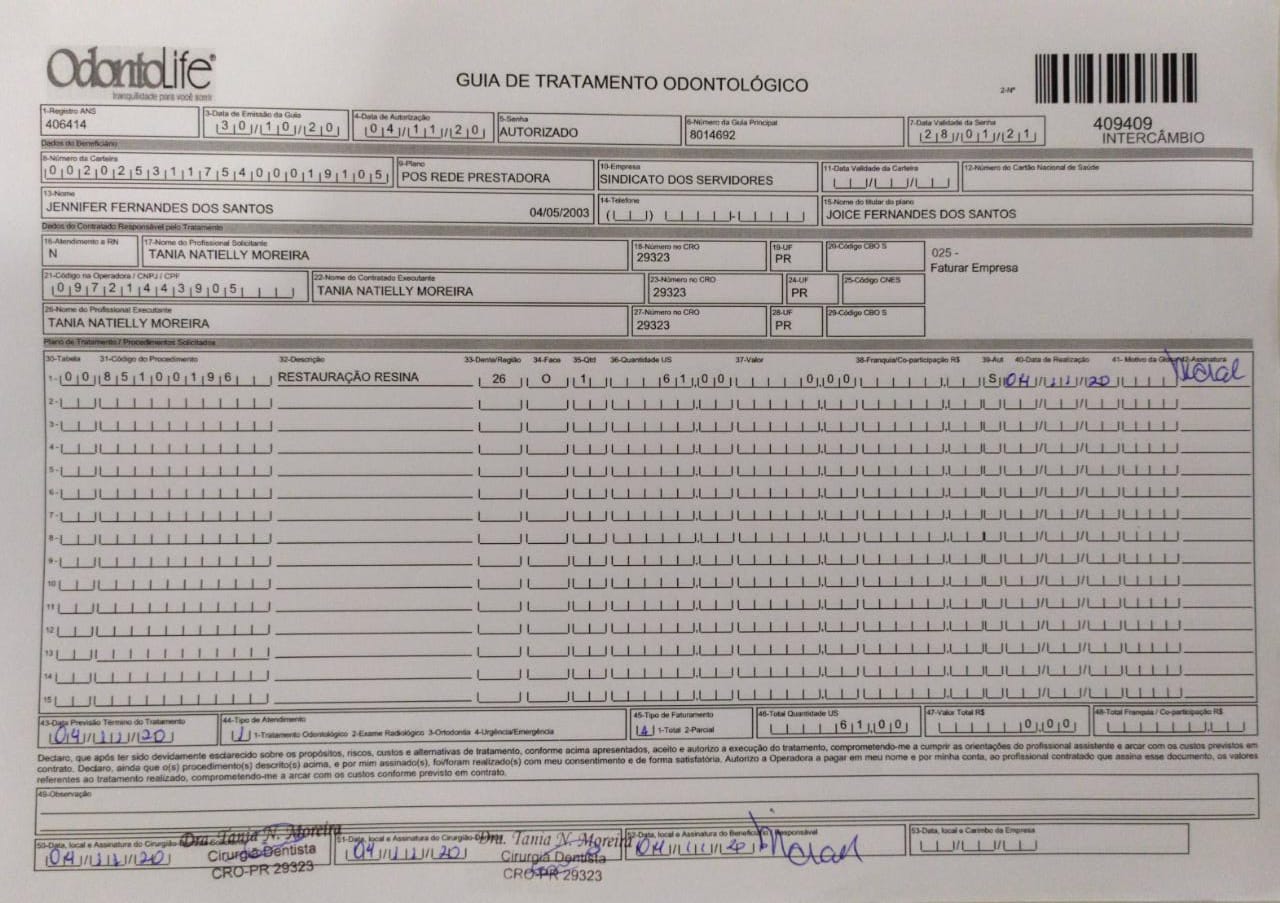 OdontoLife®
tranquilidade para você sorrir
GUIA DE TRATAMENTO ODONTOLÓGICO
2-Nº
409409
INTERCÂMBIO
1-Registro ANS
406414
3-Data de Emissão da Guia
30/10/20
4-Data de Autorização
04/11/20
5-Senha
AUTORIZADO
6-Número da Guia Principal
8014692
7-Data Validade da Senha
28/01/21
Dados do Beneficiário
8-Número da Carteira
00202531175400019105
9-Plano
POS REDE PRESTADORA
10-Empresa
SINDICATO DOS SERVIDORES
11-Data Validade da Carteira
12-Número do Cartão Nacional de Saúde
13-Nome
JENNIFER FERNANDES DOS SANTOS 04/05/2003
14-Telefone
15-Nome do titular do plano
JOICE FERNANDES DOS SANTOS
Dados do Contratado Responsável pelo Tratamento
16-Atendimento a RN
N
17-Nome do Profissional Solicitante
TANIA NATIELLY MOREIRA
18-Número no CRO
29323
19-UF
PR
20-Código CBO S
025 -
Faturar Empresa
21-Código na Operadora / CNPJ / CPF
09721443905
22-Nome do Contratado Executante
TANIA NATIELLY MOREIRA
23-Número no CRO
29323
24-UF
PR
25-Código CNES
26-Nome do Profissional Executante
TANIA NATIELLY MOREIRA
27-Número no CRO
29323
28-UF
PR
29-Código CBO S
Plano de Tratamento / Procedimentos Solicitados
30-Tabela 31-Código do Procedimento 32-Descrição 33-Dente/Região 34-Face 35-Qtd 36-Quantidade US 37-Valor 38-Franquia/Co-participação R$ 39-Aut 40-Data de Realização 41- Motivo da 42-Assinatura
1- 00 85100196 RESTAURAÇÃO RESINA 26 O 1 61,00 0,00 S 04/11/20
2-
3-
4-
5-
6-
7-
8-
9-
10
11
12
13
14
15
43-Data Previsão Término do Tratamento
04/11/20
44-Tipo de Atendimento
1 1-Tratamento Odontológico 2-Exame Radiológico 3-Ortodontia 4-Urgência/Emergência
45-Tipo de Faturamento
1-Total 2-Parcial
46-Total Quantidade US
61,00
47-Valor Total R$
0,00
48-Total Franquia / Co-participação R$
Declaro, que após ter sido devidamente esclarecido sobre os propósitos, riscos, custos e alternativas de tratamento, conforme acima apresentados, aceito e autorizo a execução do tratamento, comprometendo-me a cumprir as orientações do profissional assistente e arcar com os custos previstos em
contrato. Declaro, ainda que o(s) procedimento(s) descrito(s) acima, e por mim assinado(s), foi/foram realizado(s) com meu consentimento e de forma satisfatória. Autorizo a Operadora a pagar em meu nome e por minha conta, ao profissional contratado que assina esse documento, os valores
referentes ao tratamento realizado, comprometendo-me a arcar com os custos conforme previsto em contrato.
49-Observação
50-Data, local e Assinatura do Cirurgião-
04/11/20
Dra. Tania N. Moreira
Cirurgiã Dentista
CRO-PR 29323
51-Data, local e Assinatura do Cirurgião-
04/11/20
Dra. Tania N. Moreira
Cirurgiã Dentista
CRO-PR 29323
52-Data, local e Assinatura do Beneficiário / Responsável
04/11/20
53-Data, local e Carimbo da Empresa